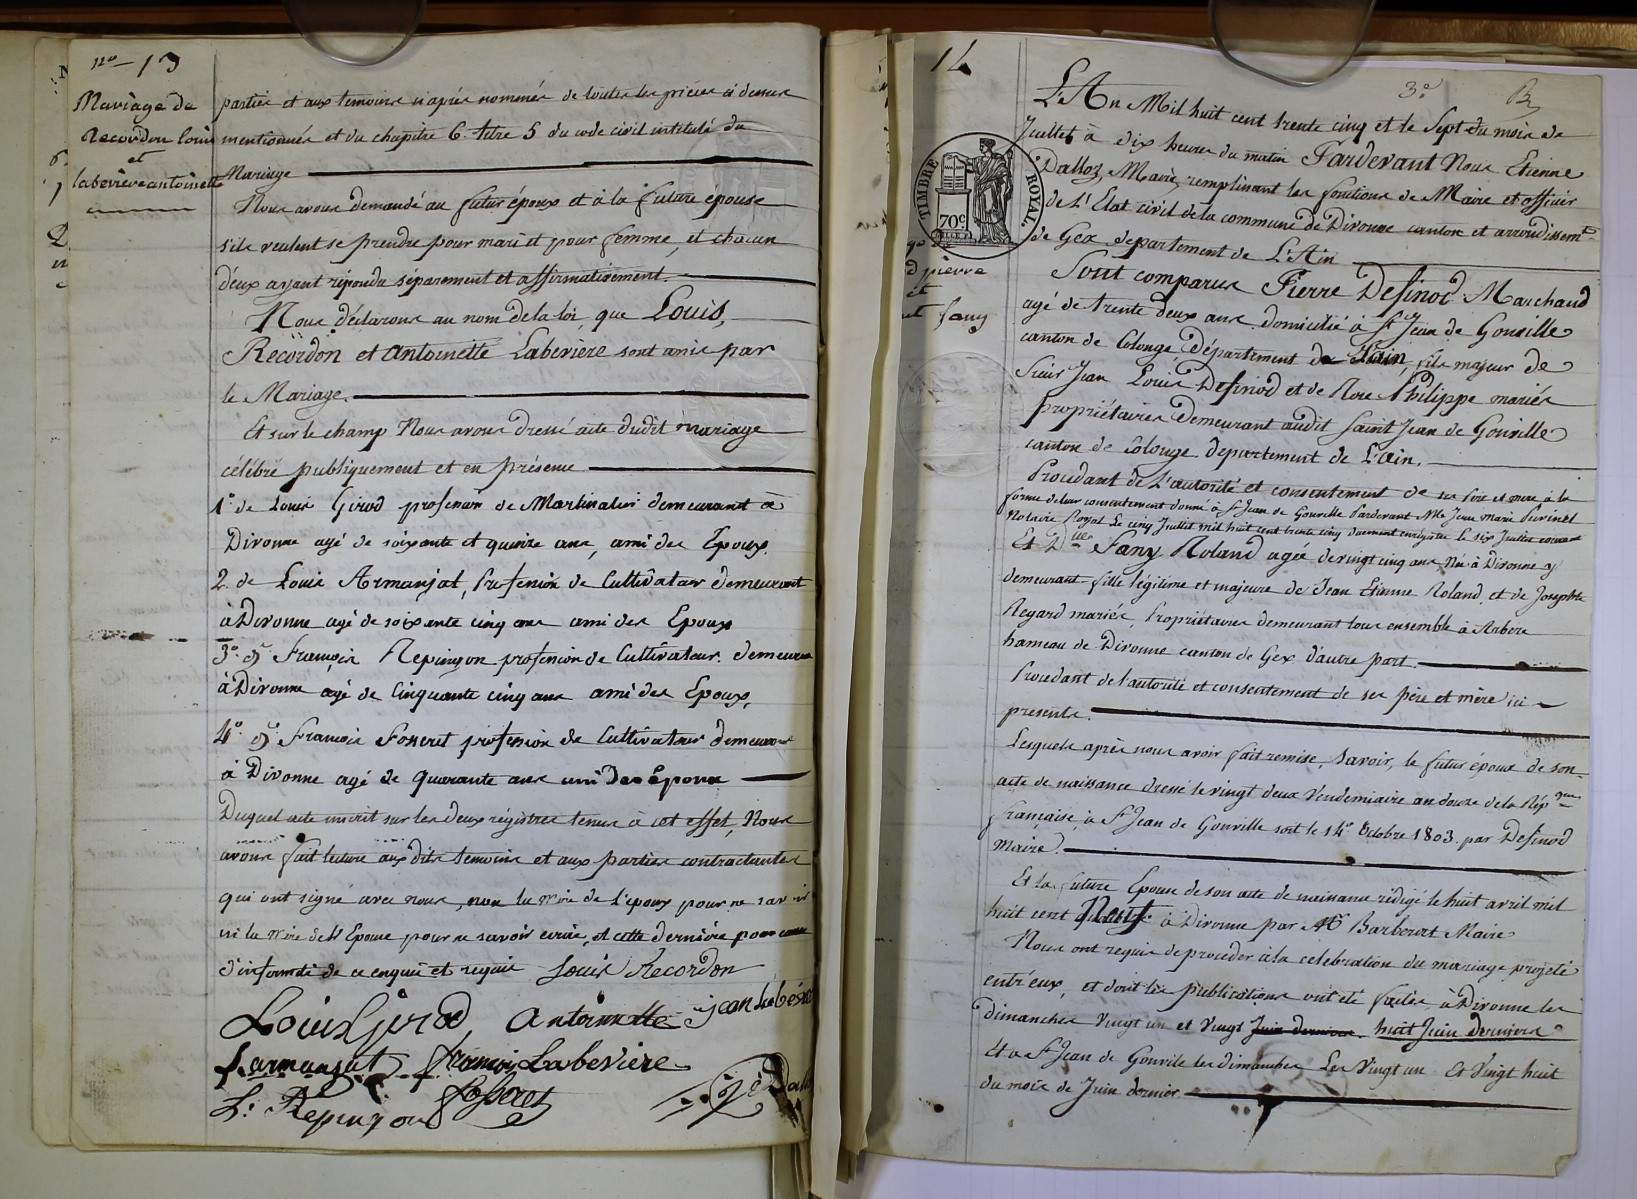 no 13
Mariage de
Recordon Louis
et
laberière antoinette
parties et aux temoins ci après nommés de toutes les pièces ci dessus
mentionnés et du chapitre 6. titre 5 du code civil intitulé du
Mariage
Nous avons demandé au futur époux et à la future épouse
s'ils veulent se prendre pour mari et pour femme, et chacun
d'eux ayant répondu séparement et affirmativement.
Nous déclarons au nom de la loi, que Louis,
Recordon et Antoinette Laberiere sont unis par
le Mariage.
Et sur le champ Nous avons dressé acte dudit mariage
célébré publiquement et en présence
1° de Louis Girod profession de Martinalier demeurant à
Divonne agé de soixante et quinze ans, ami des Epoux.
2 de Louis Armanjat, Profession de Cultivateur demeurant
à Divonne agé de soixante cinq ans ami des Epoux
3° François Repingon profession de Cultivateur. demeurant
à Divonne agé de Cinquante cinq ans ami des Epoux,
4° François Fosseret profession de Cultivateur demeurant
à Divonne agé de quarante ans ami des Epoux
Duquel acte inscrit sur les deux régistres tenus à cet effet, Nous
avons fait lecture aux dits temoins et aux parties contractantes
qui ont signé avec nous, non la mère de l'époux pour ne savoir
ni la mère de l'Epouse pour ne savoir écrire, et cette dernière pour cause
d'infirmité de ce enquis et requis Louis Recordon
Louis Girod, antoinette jean labé
l. armanjat françois Labeviere
L. Repingon fosseret
14
3°
TIMBRE ROYAL
70c
pierre
et
fany
L'An Mil huit cent trente cinq et le Sept du mois de
Juillet à dix heures du matin Pardevant Nous Etienne
Dalloz, Maire, remplissant les fonctions de Maire et officier
de L'Etat civil de la commune de Divonne canton et arrondissemt
de Gex departement de L'Ain
Sont comparus Pierre Desinod Marchand
agé de trente deux ans domicilié à St Jean de Gonville
canton de Colonge Département de Lain, fils majeur de
Sieur Jean Louis Desinod et de Rose Philippe mariés
propriétaires demeurant audit Saint Jean de Gonville
canton de Colonge departement de L'ain.
Procedant de L'autorité et consentement de ses père et mere à la
forme de leur consentement donné à St Jean de Gonville Pardevant Me Jean Marie Perinet
Notaire Royal Le cinq Juillet mil huit cent trente cinq duement enrégistré le six Juillet courant
Et Dlle Fany Roland agée de vingt cinq ans Née à Divonne y
demeurant fille légitime et majeure de Jean Etienne Roland, et de Josephte
Regard mariés, Propriétaires demeurant tous ensemble à Arbere
hameau de Divonne canton de Gex d'autre part.
Procedant de l'autorité et consentement de ses père et mère ici
presents.
Lesquels après nous avoir fait remise, Savoir, le futur époux de son
acte de naissance dressé le vingt deux Vendemiaire an douze de la Rép
française, à St Jean de Gonville soit le 14° Octobre 1803. par Desinod
Maire.
Et la future Epouse de son acte de naissance rédigé le huit avril mil
huit cent Neuf à Divonne par Mr Barberat Maire
Nous ont requis de proceder à la celebration du mariage projeté
entr'eux, et dont les publications ont été faites à Divonne les
dimanches Vingt un et Vingt Juin dernier. huit Juin derniers
Et à St Jean de Gonvile les dimanches Les Vingt un Et Vingt huit
du mois de Juin dernier